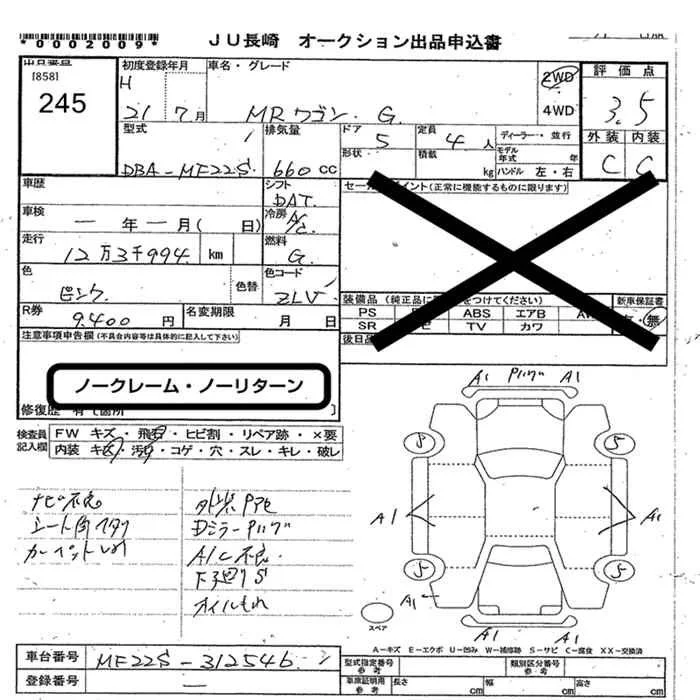 *0002009*
JU長崎 オークション出品申込書
出品番号
[858]
245
初度登録年月
H
21 7月
車名・グレード
MRワゴン G
2WD
4WD
評価点
3.5
外装 内装
C C
型式
DBA-MF22S
排気量
660 CC
ドア 5
形状
定員 4人
積載 kg
ディーラー・並行
モデル年式 年
ハンドル 左・右
車歴
シフト
DAT
セールスポイント(正常に機能するものに限ります)
車検
― 年 ― 月( 日)
冷房
A/C
走行
12万3千994 km
燃料
G
色
ピンク
色替
色コード
ZLV
装備品(純正品に○をつけてください)
新車保証書
PS ABS エアB
SR TV カワ
・無
R券
9.400 円
名変期限
月 日
後日品
注意事項申告欄(不具合内容等は具体的に記入して下さい)
ノークレーム・ノーリターン
修復歴 有(箇所 )
検査員
記入欄
FW キズ・飛石・ヒビ割・リペア跡・×要
内装 キズ・汚れ・コゲ・穴・スレ・キレ・破レ
ナビ不良
外装
Dミラー
A/C不良
オイルもれ
A1 A1
3 5
A1 A1
5 5
A1
A1 A1
スペア
A-キズ E-エクボ U-凹み W-補修跡 S-サビ C-腐食 XX-交換済
車台番号
MF22S-312546
登録番号
―
型式指定番号
参考
類別区分番号
参考
車庫証明用
参考
長さ cm
幅 cm
高さ cm